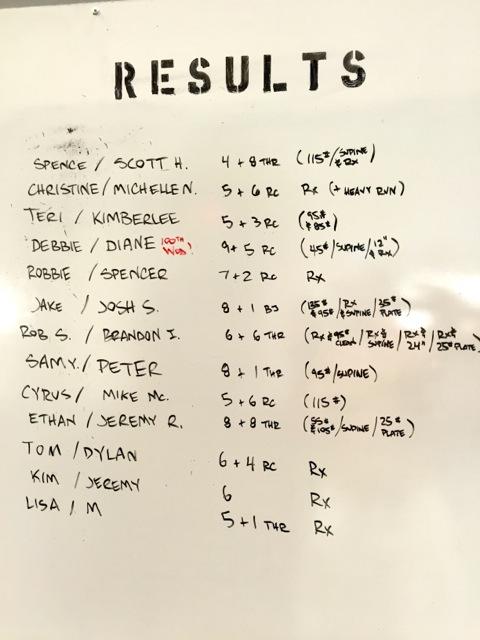 RESULTS
SPENCE / SCOTT H. 4 + 8 THR (115# / SUPINE & RX)
CHRISTINE / MICHELLE N. 5 + 6 RC RX (+ HEAVY RUN)
TERI / KIMBERLEE 5 + 3 RC (95# & 85#)
DEBBIE / DIANE 100TH WOD! 9 + 5 RC (45# / SUPINE / 12" & RX)
ROBBIE / SPENCER 7 + 2 RC RX
JAKE / JOSH S. 8 + 1 BJ (135# & 95# / RX & SUPINE / 25# PLATE)
ROB S. / BRANDON I. 6 + 6 THR (RX & 95# CLEAN / RX & SUPINE / RX & 24" / RX & 25# PLATE)
SAMY / PETER 8 + 1 THR (95# / SUPINE)
CYRUS / MIKE MC. 5 + 6 RC (115#)
ETHAN / JEREMY R. 8 + 8 THR (55# & 105# / SUPINE / 25# PLATE)
TOM / DYLAN 6 + 4 RC RX
KIM / JEREMY 6 RX
LISA / M 5 + 1 THR RX